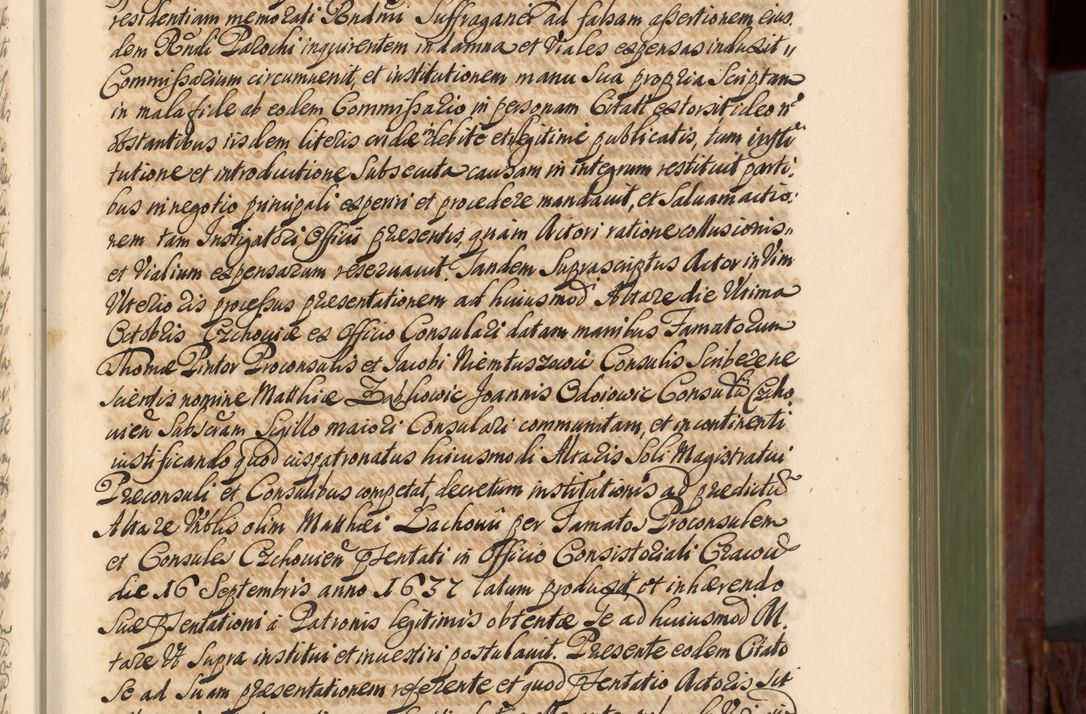 residentiam memorati Rndmi Suffraganei ad falsam assertionem eius,
dem Rndi Parochi inquirentem in damna et viales expensas induxit,,
Commissarium circumuenit, et institutionem manu sua propria Scriptam
in mala fide ab eodem Commissario in personam Citati extorsit ideo n̄
obstantibus iisdem literis cridae indebite et illegitime publicatis, tum insti
tutione et introductione subsecuta causam in integrum restituit parti,
bus in negotio principali experiri et procedere mandauit, et saluam actio,
nem tam Instigatori Officii praesentis, quam Actori ratione collusionis,,
et vialium expensarum reseruauit. Tandem Suprascriptus Actor in Vim
Vlterioris processus praesentationem ad huiusmod Altare die Vltima
Octobris Czchouiae ex Officio Consulari datam manibus Famatorum
Thomae Pintor Proconsulis et Jacobi Niemtuszowic Consulis Scribere ne
scientis nomine Matthiae Joannis Consulū Czcho,
uien Subscram Sigillo maiori Consulari communitam, et in continenti
iustificando quod iuspatronatus huiusmodi Altaris Soli Magistratui
Praeconsuli et Consulibus competat, decretum institutionis ad praedictū
Altare Vrblis olim Matthei Zachowii per Famatos Proconsulem
et Consules Czchouien pſentati in Officio Consistoriali Cracou
die 16 Septembris anno 1637 latum produxit et inhaerendo
Suae pſentationi a Patronis legitimis obtentae Se ad huiusmod Al,
tare Vt Supra institui et inuestiri postulauit. Praesente eodem Citato
Se ad Suam praesentationem referente et quod pſentatio Actoris sit